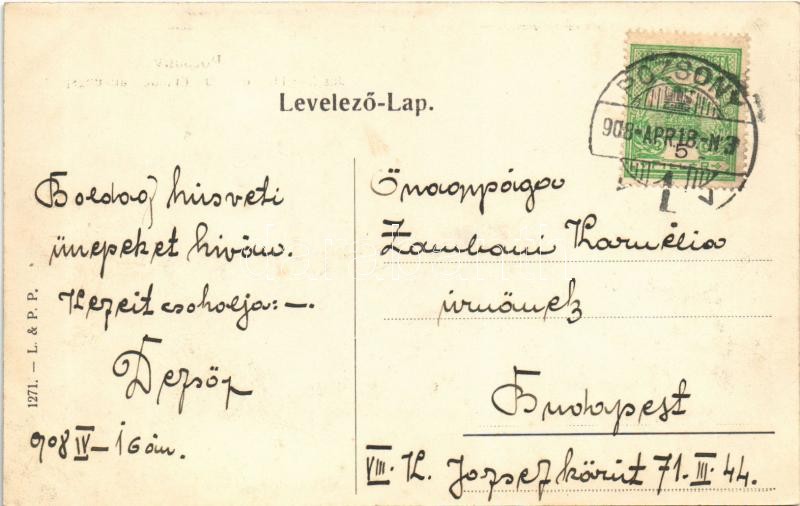 Levelező-Lap.
POZSONY
908-APR.18-N3
5
1
Boldog húsvéti
ünepeket kiván.
Kezeit csokolja: —.
Dezső
908 IV–16án.
1271. — L. & P. P.
Őnagysága
Zamboni Kornélia
úrnőnek
Budapest
VIII. K. Jozsefkörút 71. III. 44.